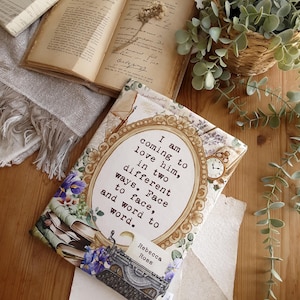 I am
coming to
love him,
in two
different
ways. Face
to face,
and word to
word.
Rebecca
Ross